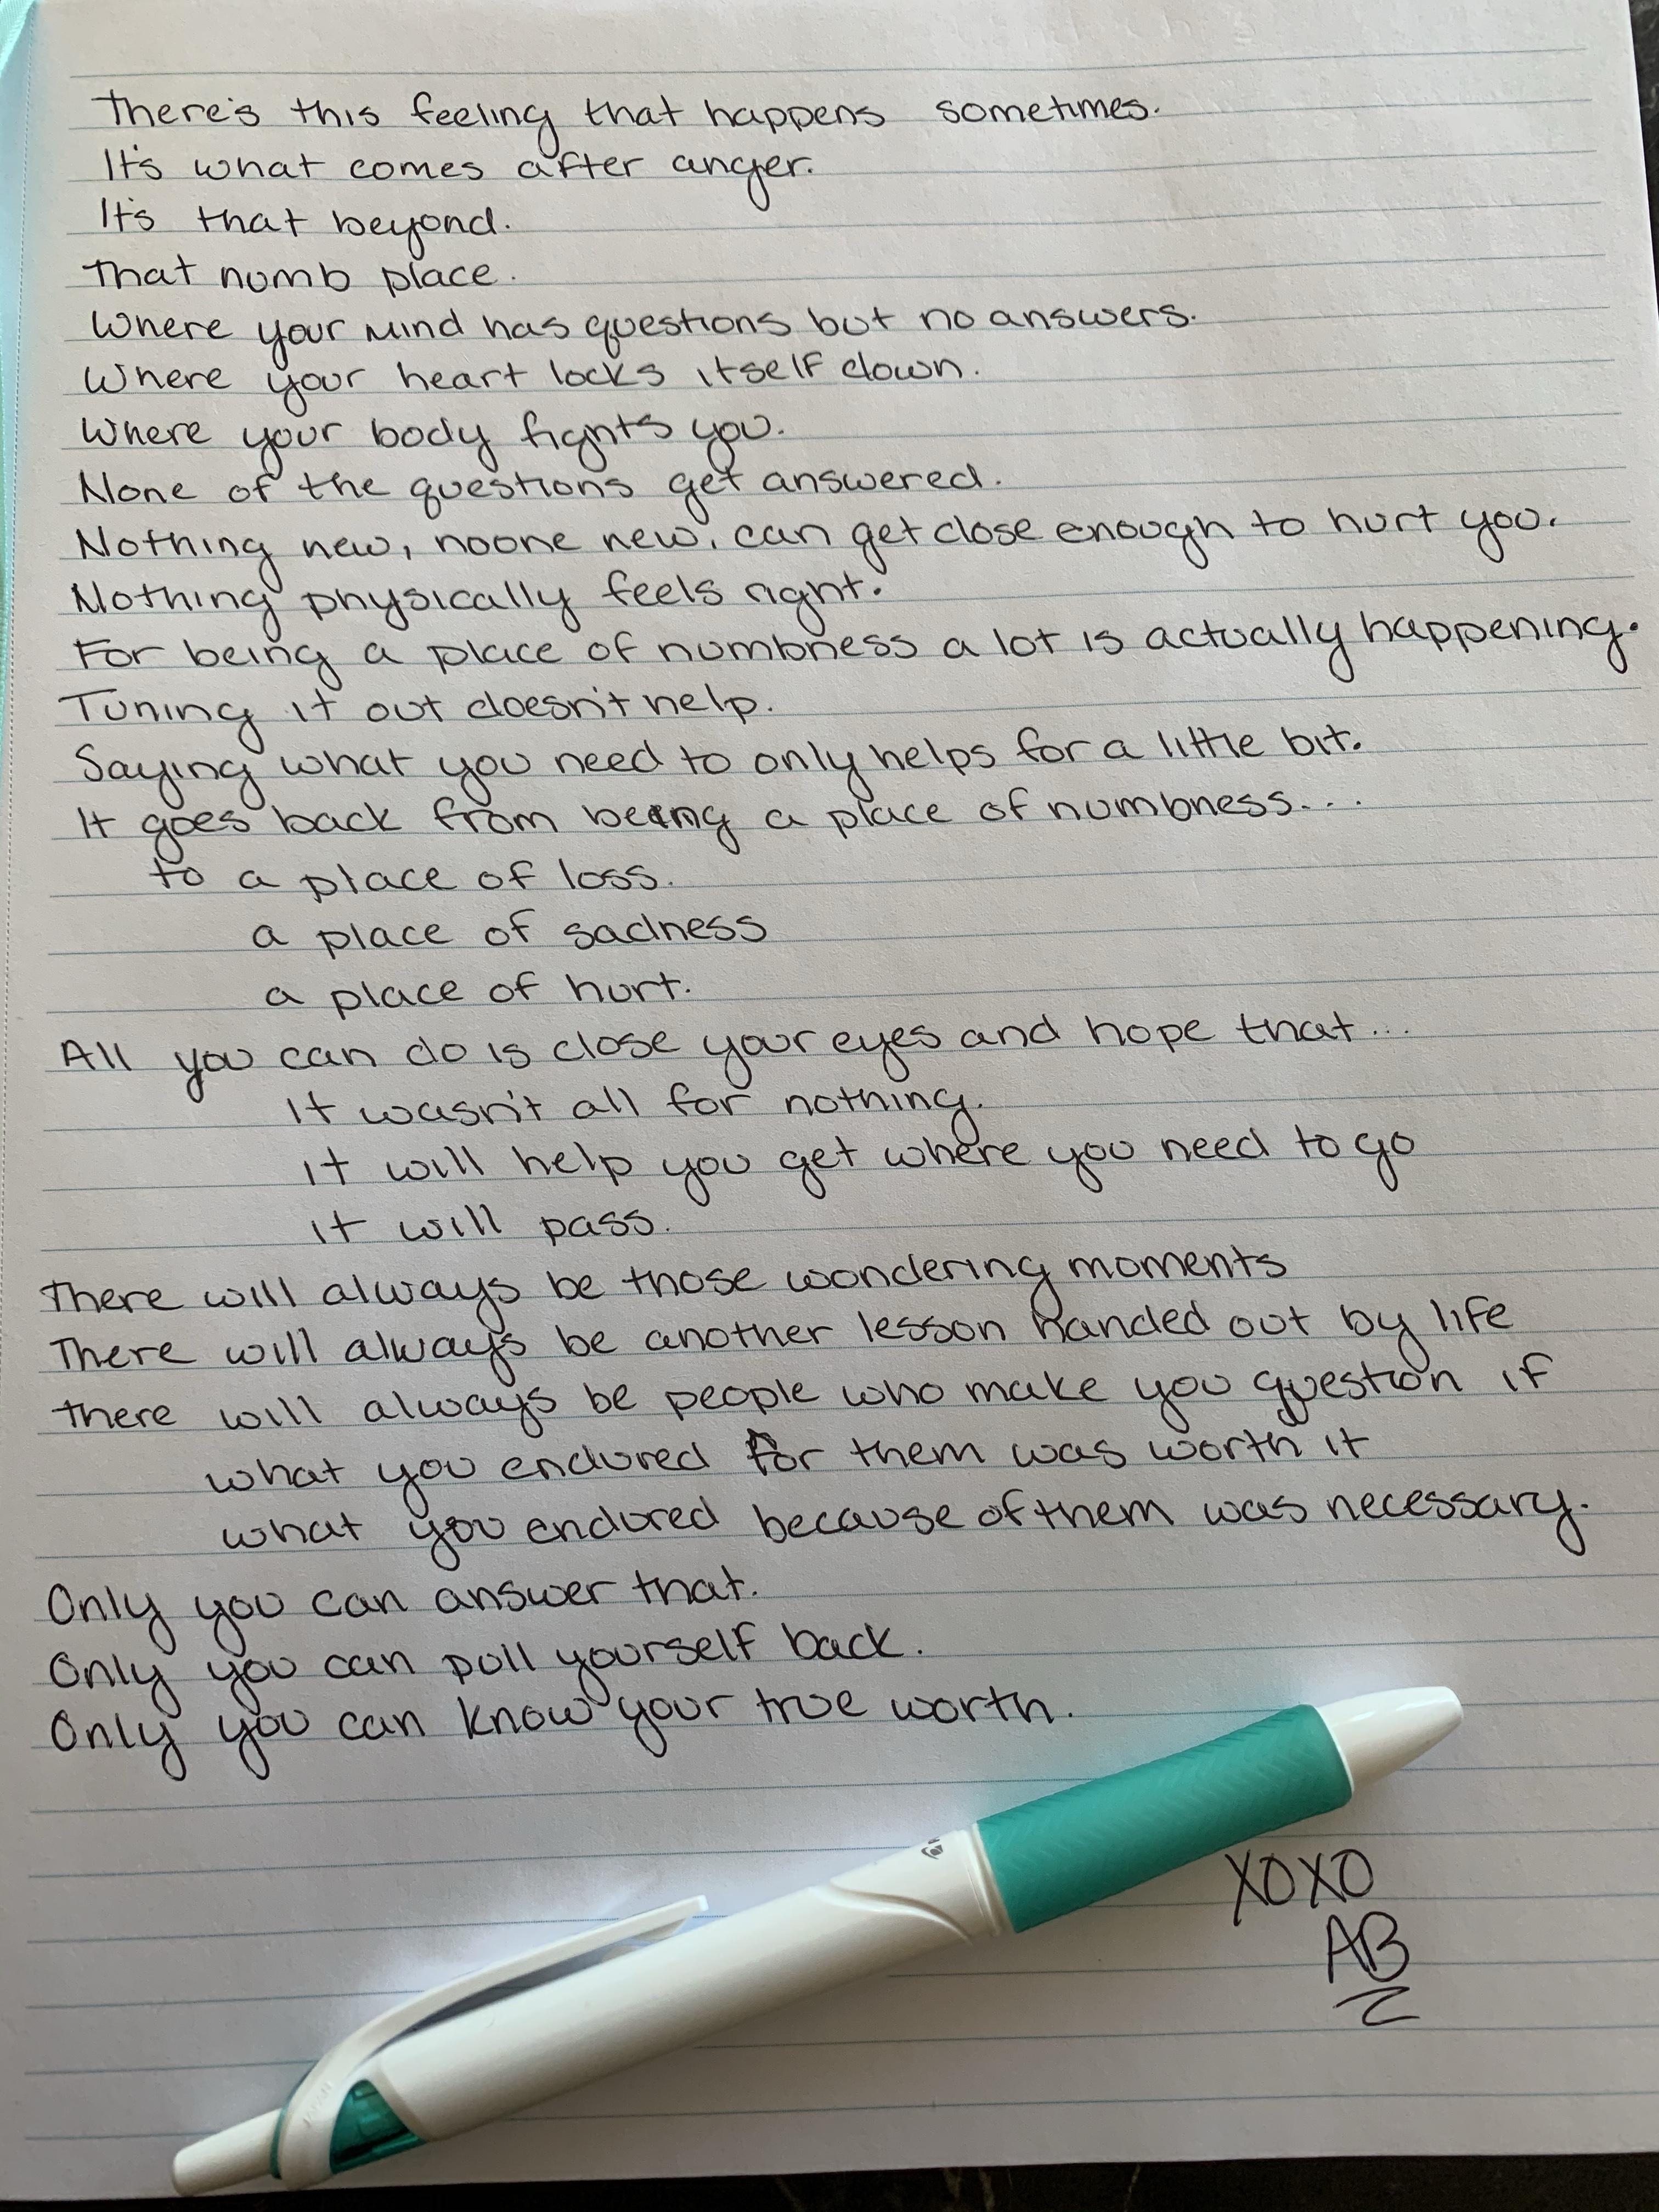 There's this feeling that happens sometimes.
It's what comes after anger.
It's that beyond.
That numb place.
Where your mind has questions but no answers.
Where your heart locks itself down.
Where your body fights you.
None of the questions get answered.
Nothing new, noone new, can get close enough to hurt you.
Nothing physically feels right.
For being a place of numbness a lot is actually happening.
Tuning it out doesn't help.
Saying what you need to only helps for a little bit.
It goes back from being a place of numbness...
to a place of loss.
a place of sadness
a place of hurt.
All you can do is close your eyes and hope that...
It wasn't all for nothing.
it will help you get where you need to go
it will pass.
There will always be those wondering moments
There will always be another lesson handed out by life
there will always be people who make you question if
what you endured for them was worth it
what you endured because of them was necessary.
Only you can answer that.
Only you can pull yourself back.
Only you can know your true worth.
XOXO
AB